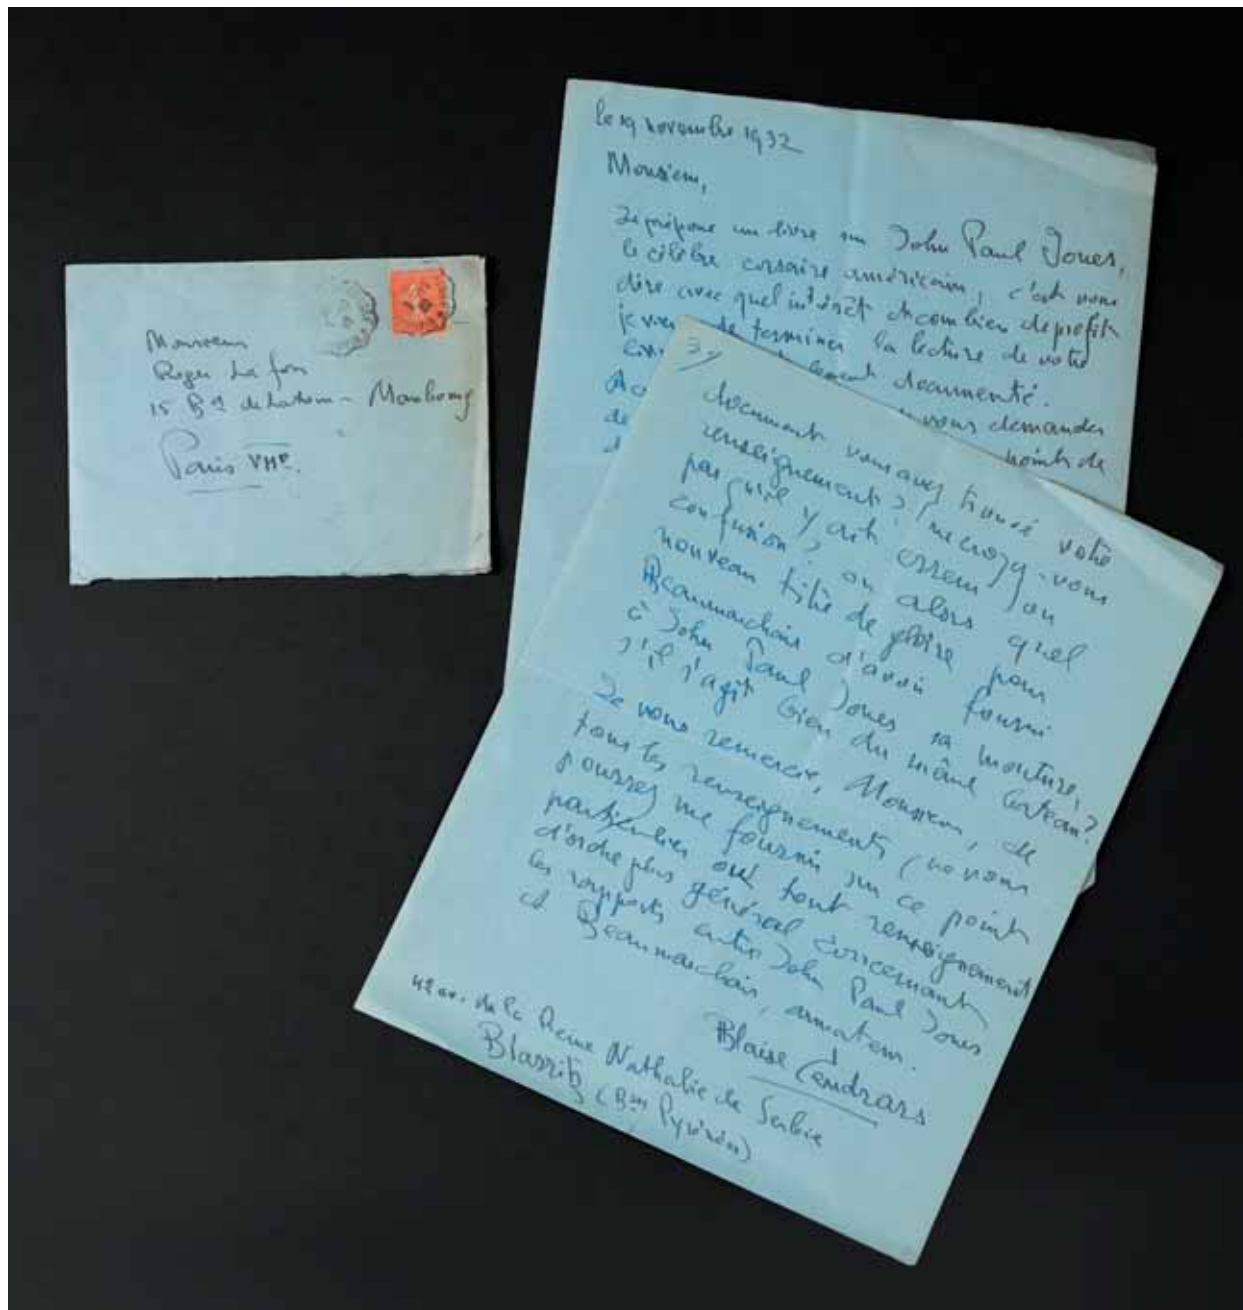 Monsieur
Roger Lafon
15 Bd de Latour-Maubourg
Paris VIIe.
le 19 novembre 1932
Monsieur,
Je prépare un livre sur John Paul Jones,
le célèbre corsaire américain, c'est vous
dire avec quel intérêt et combien de profit
je viens de terminer la lecture de votre
documenté.
vous demander
de points de
3/
document vous avez trouvé votre
renseignement? ne croyez-vous
pas qu'il y ait erreur ou
confusion? ou alors quel
nouveau titre de gloire pour
Beaumarchais d'avoir fourni
à John Paul Jones sa monture,
s'il s'agit bien du même bateau?
Je vous remercie, Monsieur, de
tous les renseignements que vous
pourrez me fournir sur ce point
particulier et tout renseignement
d'ordre plus général concernant
les rapports entre John Paul Jones
et Beaumarchais, armateur.
Blaise Cendrars
42 av. de la Reine Nathalie de Serbie
Biarritz (Bses Pyrénées)